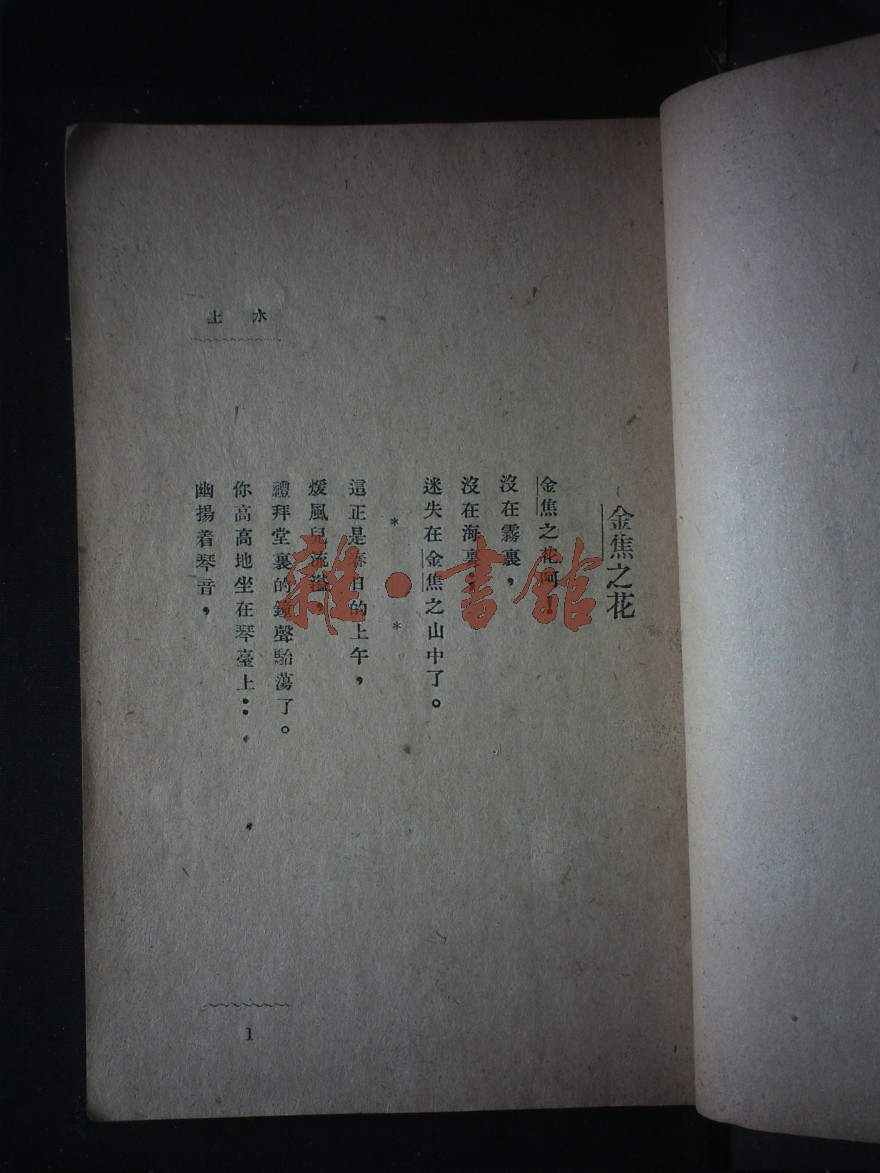 水上
金焦之花
金焦之花呵！
沒在霧裏，
沒在海裏，
迷失在金焦之山中了。
＊　＊
這正是春日的上午，
煖風兒流溢，
禮拜堂裏的鐘聲駘蕩了。
你高高地坐在琴臺上：
幽揚着琴音，
1
雜·書館